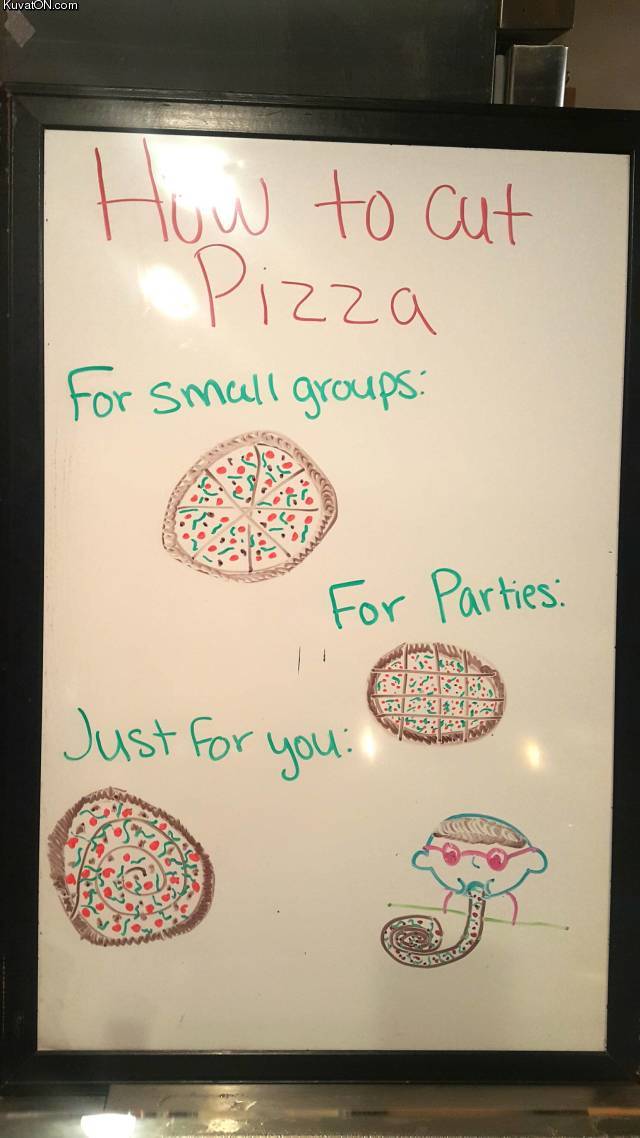 KuvatON.com
How to cut
Pizza
For small groups:
For Parties:
Just for you: